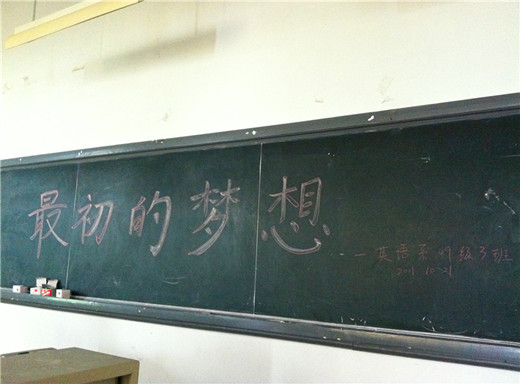 最初的梦想
—英语系09级3班
2011 10.21